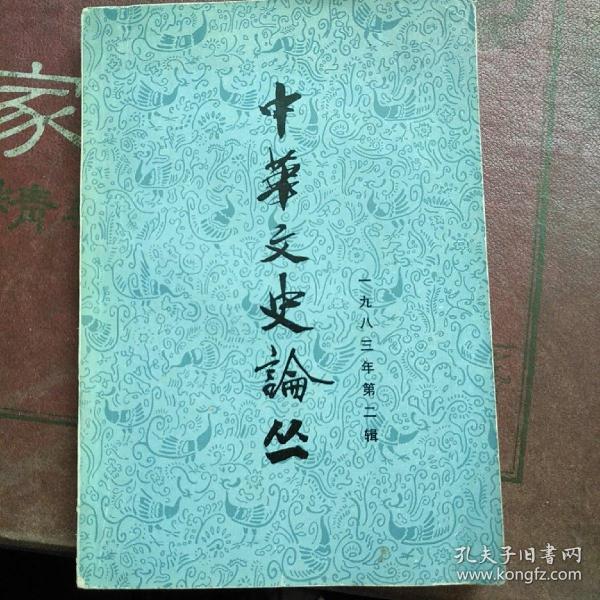 中華文史論丛
一九八三年第二辑
家
精
孔夫子旧書网
www.kongfz.com